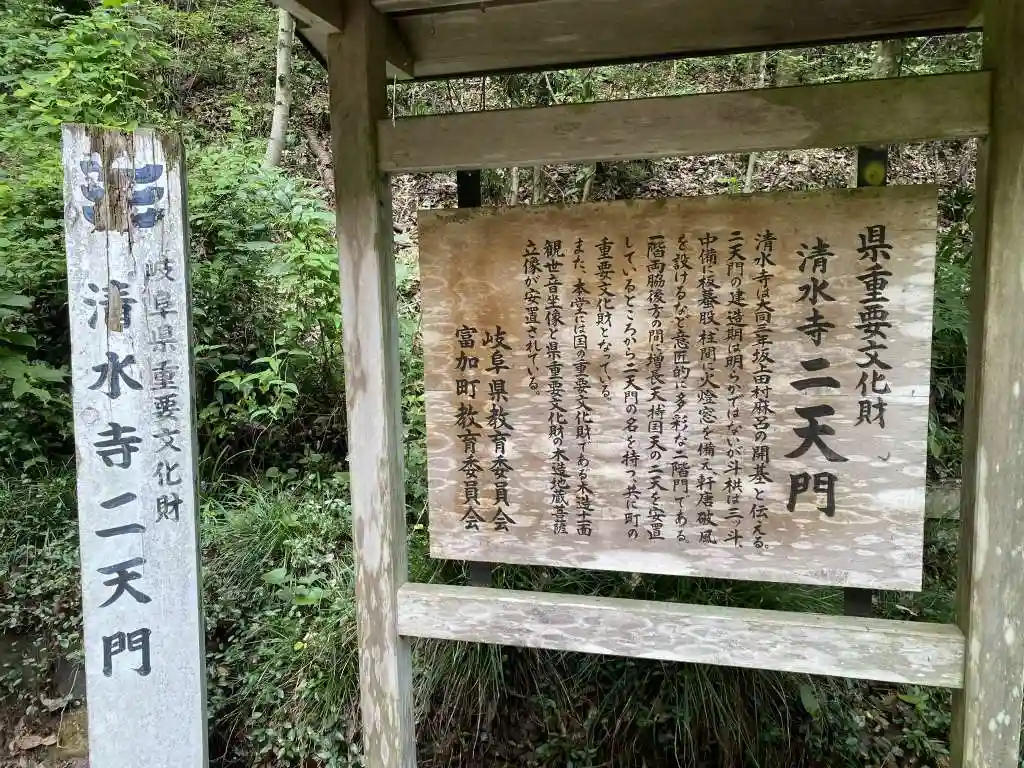 岐阜県重要文化財
清水寺二天門
県重要文化財
清水寺二天門
清水寺は大同三年坂上田村麻呂の開基と伝える。
二天門の建造期は明らかではないが斗栱は三ッ斗、
中備に板蟇股、柱間に火燈窓を備え軒唐破風
を設けるなど意匠的に多彩な二階門である。
一階両脇後方の間に増長天持国天の二天を安置
しているところから二天門の名を持つ、共に町の
重要文化財となっている。
また、本堂には国の重要文化財である木造十一面
観世音坐像と県重要文化財の木造地蔵菩薩
立像が安置されている。
岐阜県教育委員会
富加町教育委員会